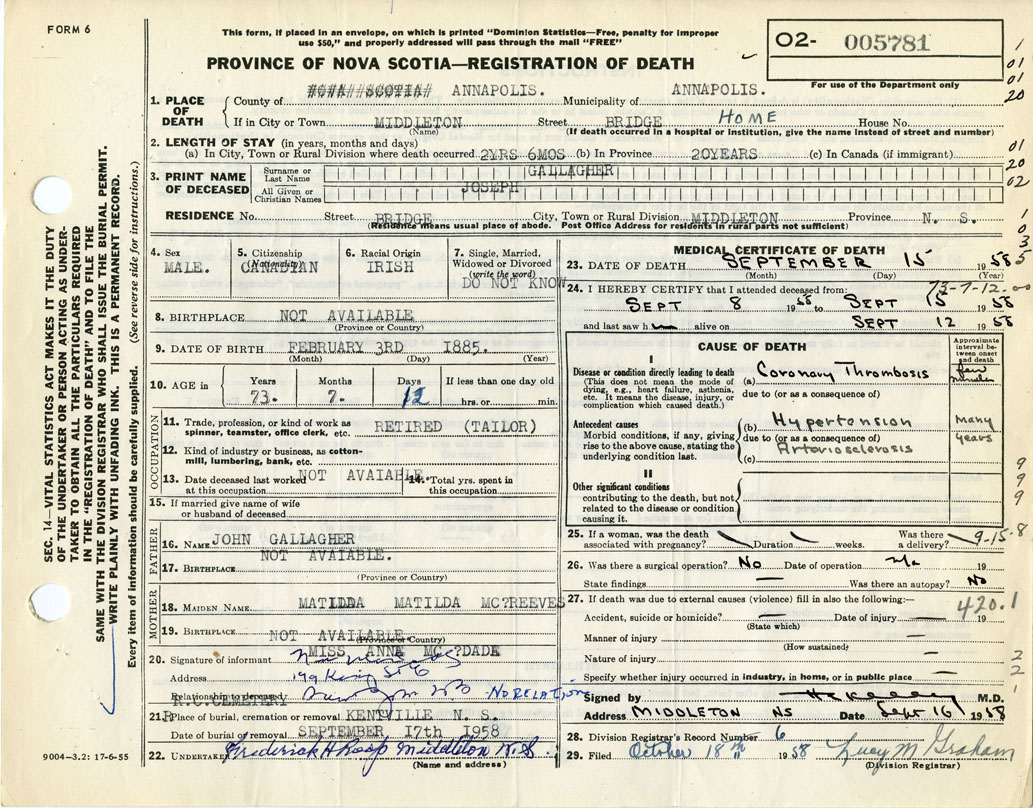 FORM 6
This form, if placed in an envelope, on which is printed "Dominion Statistics—Free, penalty for improper
use $50," and properly addressed will pass through the mail "FREE"
PROVINCE OF NOVA SCOTIA—REGISTRATION OF DEATH
O2- 005781
For use of the Department only
1
01
01
20
1. PLACE OF DEATH
County of NOVA SCOTIA ANNAPOLIS. Municipality of ANNAPOLIS.
If in City or Town MIDDLETON Street BRIDGE HOME House No.
(Name) (If death occurred in a hospital or institution, give the name instead of street and number)
2. LENGTH OF STAY (in years, months and days)
(a) In City, Town or Rural Division where death occurred 2YRS 6MOS (b) In Province 20YEARS (c) In Canada (if immigrant)
01
20
02
3. PRINT NAME OF DECEASED
Surname or Last Name GALLAGHER
All Given or Christian Names JOSEPH
RESIDENCE No. Street BRIDGE City, Town or Rural Division MIDDLETON Province N. S.
(Residence means usual place of abode. Post Office Address for residents in rural parts not sufficient)
1
0
3
5
4. Sex MALE.
5. Citizenship (Nationality) CANADIAN
6. Racial Origin IRISH
7. Single, Married, Widowed or Divorced (write the word) DO NOT KNOW
8. BIRTHPLACE NOT AVAILABLE
(Province or Country)
9. DATE OF BIRTH FEBRUARY 3RD 1885.
(Month) (Day) (Year)
10. AGE in Years 73. Months 7. Days 12 If less than one day old hrs. or min.
OCCUPATION
11. Trade, profession, or kind of work as spinner, teamster, office clerk, etc. RETIRED (TAILOR)
12. Kind of industry or business, as cotton-mill, lumbering, bank, etc.
13. Date deceased last worked at this occupation NOT AVAIABLE
14. Total yrs. spent in this occupation
15. If married give name of wife or husband of deceased
FATHER
16. NAME JOHN GALLAGHER
17. BIRTHPLACE NOT AVAIABLE.
(Province or Country)
MOTHER
18. MAIDEN NAME MATILDA MATILDA MC?REEVES
19. BIRTHPLACE NOT AVAILABLE
(Province or Country)
MISS ANNE MC ?DADE
20. Signature of informant
Address 199 King St E
Relationship to deceased NO RELATION
R.C. CEMETERY
21. Place of burial, cremation or removal KENTVILLE N. S.
Date of burial or removal SEPTEMBER 17th 1958
22. UNDERTAKER Frederick H Roop Middleton N.S.
(Name and address)
MEDICAL CERTIFICATE OF DEATH
23. DATE OF DEATH SEPTEMBER 15 1958
(Month) (Day) (Year)
73-7-12-00
24. I HEREBY CERTIFY that I attended deceased from:
SEPT 8 1958 to SEPT 15 1958
and last saw him alive on SEPT 12 1958
CAUSE OF DEATH
Approximate interval between onset and death
I
Disease or condition directly leading to death
(This does not mean the mode of dying, e.g., heart failure, asthenia, etc. It means the disease, injury, or complication which caused death.)
(a) Coronary Thrombosis few minutes
due to (or as a consequence of)
Antecedent causes
Morbid conditions, if any, giving rise to the above cause, stating the underlying condition last.
(b) Hypertension many years
due to (or as a consequence of)
(c) Arteriosclerosis
II
Other significant conditions
contributing to the death, but not related to the disease or condition causing it.
9
9
9
25. If a woman, was the death associated with pregnancy? Duration weeks. Was there a delivery?
9-15-8
26. Was there a surgical operation? No Date of operation n/a 19
State findings Was there an autopsy? No
27. If death was due to external causes (violence) fill in also the following:—
420.1
Accident, suicide or homicide? Date of injury 19
(State which)
Manner of injury
(How sustained)
Nature of injury
Specify whether injury occurred in industry, in home, or in public place
2
2
1
Signed by M.D.
Address MIDDLETON NS Date Sept 16 1958
28. Division Registrar's Record Number 6
29. Filed October 18th 1958 Lucy M Graham
(Division Registrar)
SEC. 14—VITAL STATISTICS ACT MAKES IT THE DUTY
OF THE UNDERTAKER OR PERSON ACTING AS UNDER-
TAKER TO OBTAIN ALL THE PARTICULARS REQUIRED
IN THE "REGISTRATION OF DEATH" AND TO FILE THE
SAME WITH THE DIVISION REGISTRAR WHO SHALL ISSUE THE BURIAL PERMIT.
WRITE PLAINLY WITH UNFADING INK. THIS IS A PERMANENT RECORD.
Every item of information should be carefully supplied. (See reverse side for instructions.)
9004—3.2: 17-6-55